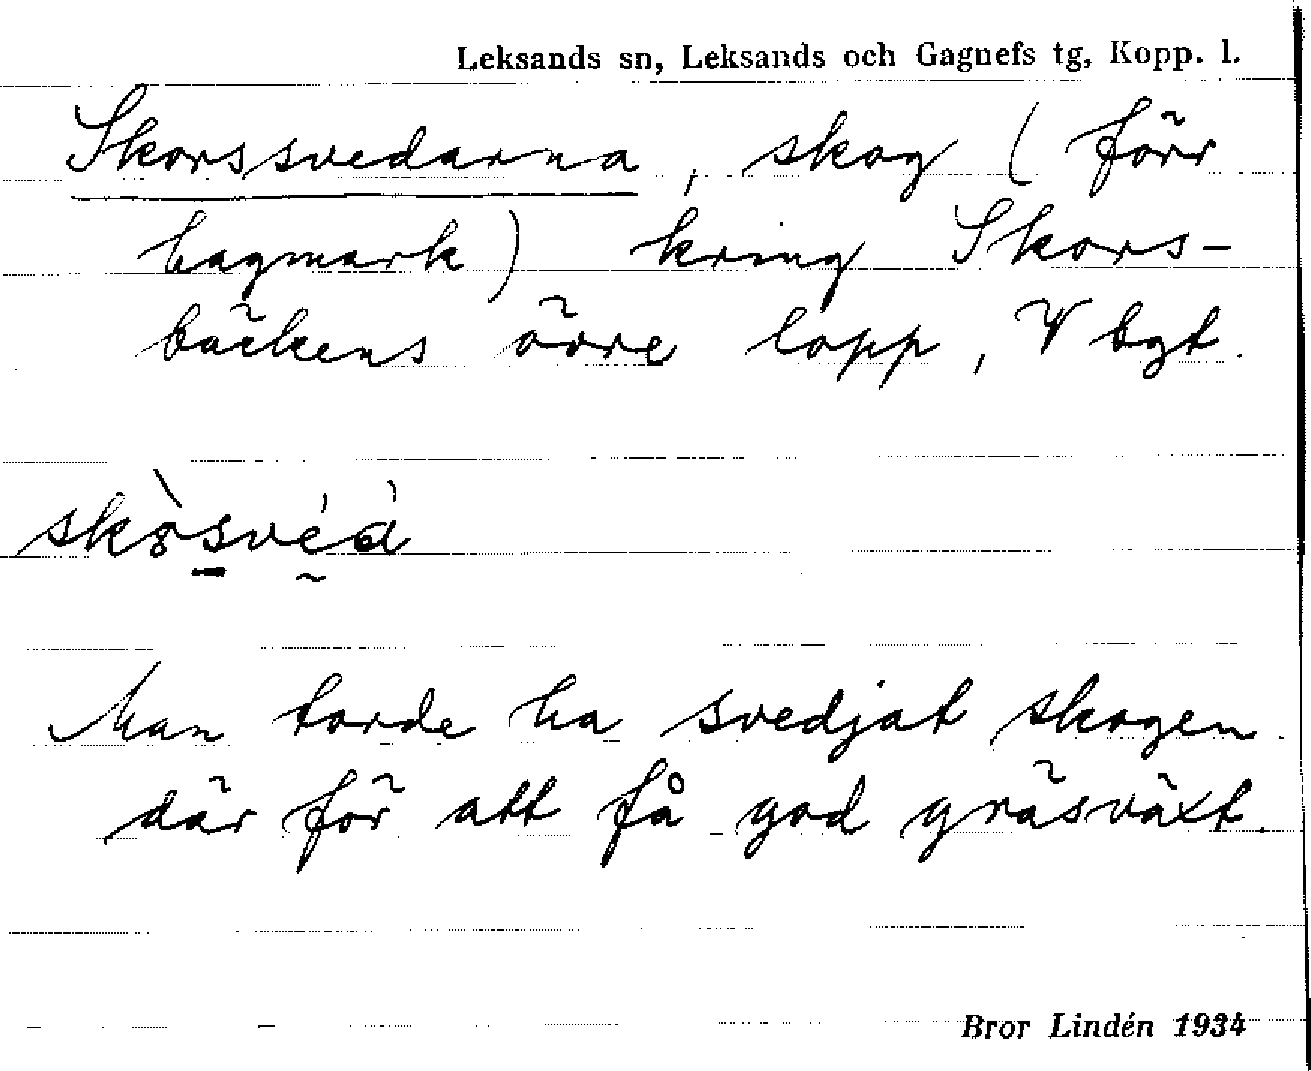 Leksands sn, Leksands och Gagnefs tg, Kopp. l.
Skorssvedarna, skog (förr
hagmark) kring Skors-
bäckens övre lopp, V bgt.
Man torde ha svedjat skogen
där för att få god gräsväxt.
Bror Lindén 1934